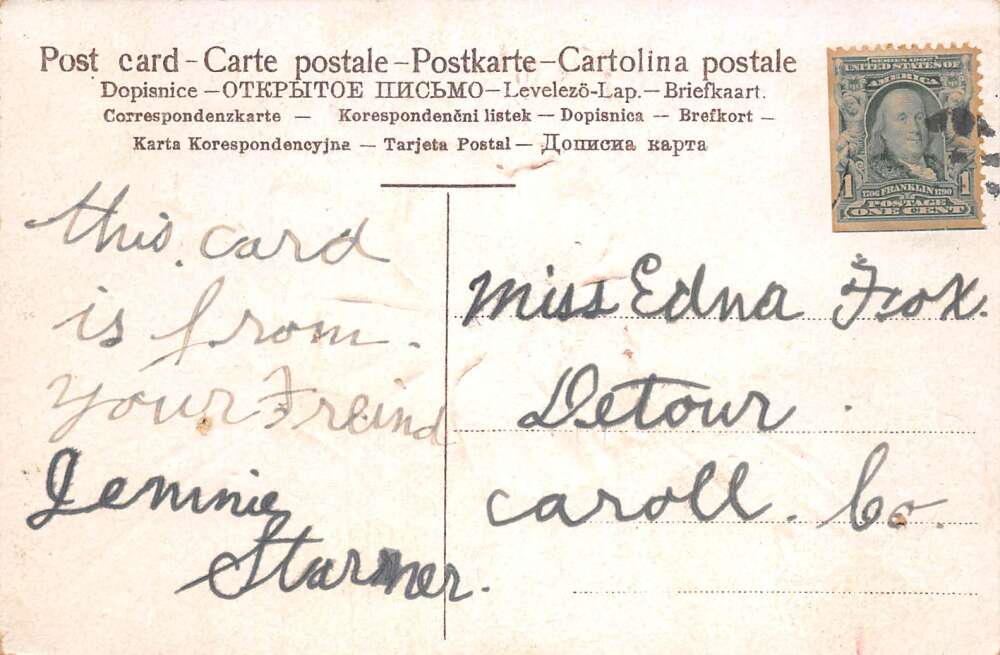 Post card – Carte postale – Postkarte – Cartolina postale
Dopisnice – ОТКРЫТОЕ ПИСЬМО – Levelező-Lap. – Briefkaart.
Correspondenzkarte — Korespondenčni listek — Dopisnica -- Brefkort –
Karta Korespondencyjna — Tarjeta Postal — Дописна карта
SERIES 1902
UNITED STATES OF
AMERICA
1 1706 FRANKLIN 1790 1
POSTAGE
ONE CENT
this card
is from.
your Freind
Jennnie
Starner.
Miss Edna Fox.
Detour.
Caroll. Co.